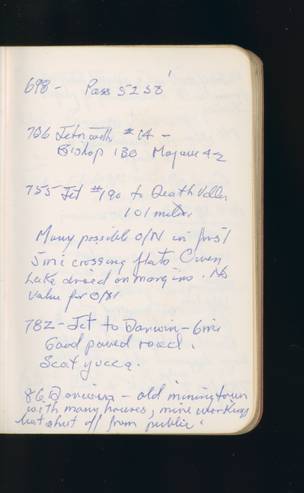 698 - Pass 5258'
706 Jct with #14 -
Bishop 130 Mojave 42
755 Jct #190 to Death Valley
101 miles
Many possible O/N in first
5 mi crossing flats Owen
Lake dried on margins. No
value for O/N
782 - Jct to Darwin - 6 mi
Good paved road.
Scat yucca.
Darwin - old mining town
with many houses, mine workings
but shut off from public.